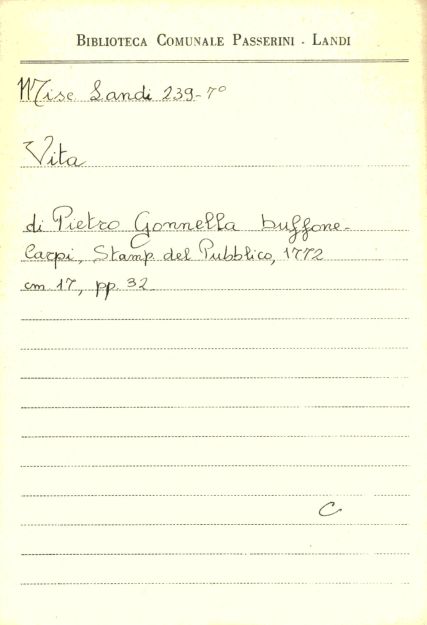 BIBLIOTECA COMUNALE PASSERINI - LANDI
Misc Landi 239-7°
Vita
di Pietro Gonnella buffone.
Carpi, Stamp. del Pubblico, 1772
cm 17, pp. 32
C